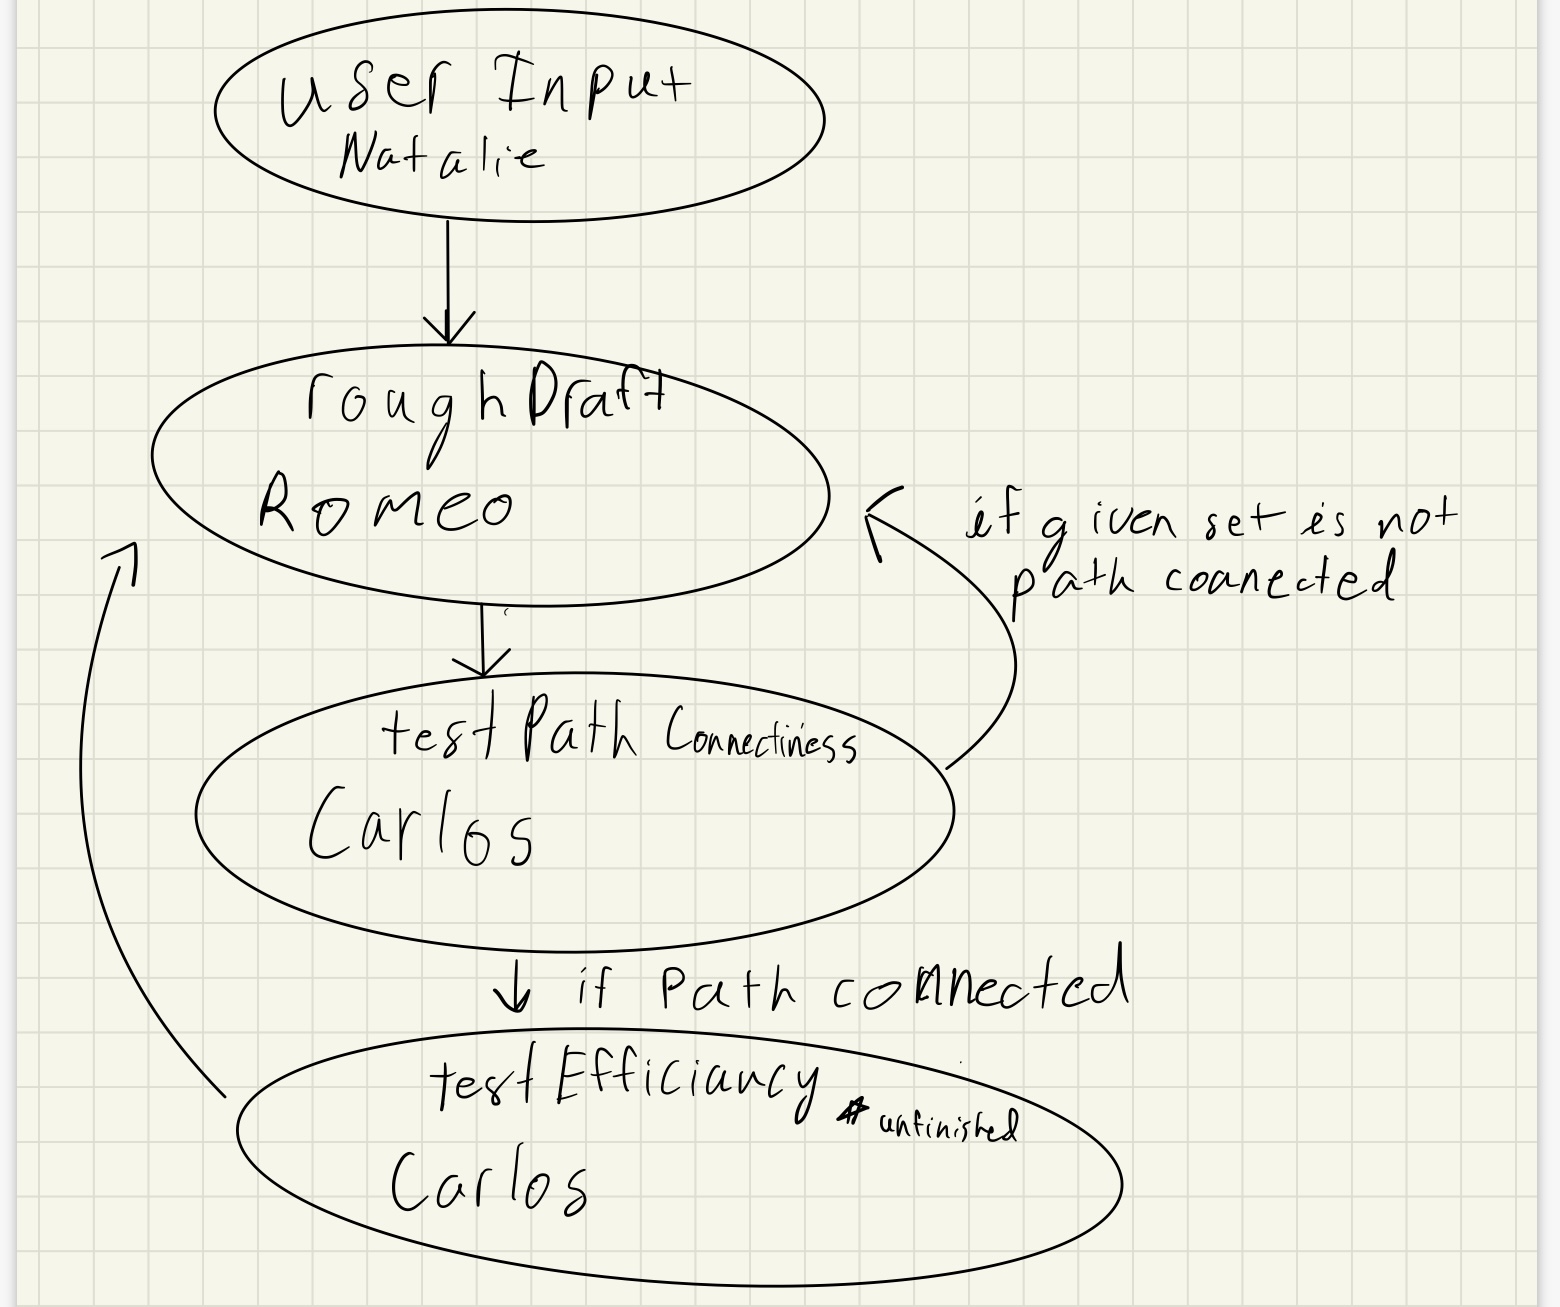 user Input
Natalie
rough Draft
Romeo
if given set is not
path coanected
test Path Connectiness
Carlos
if Path connected
test Efficiancy
* unfinished
Carlos